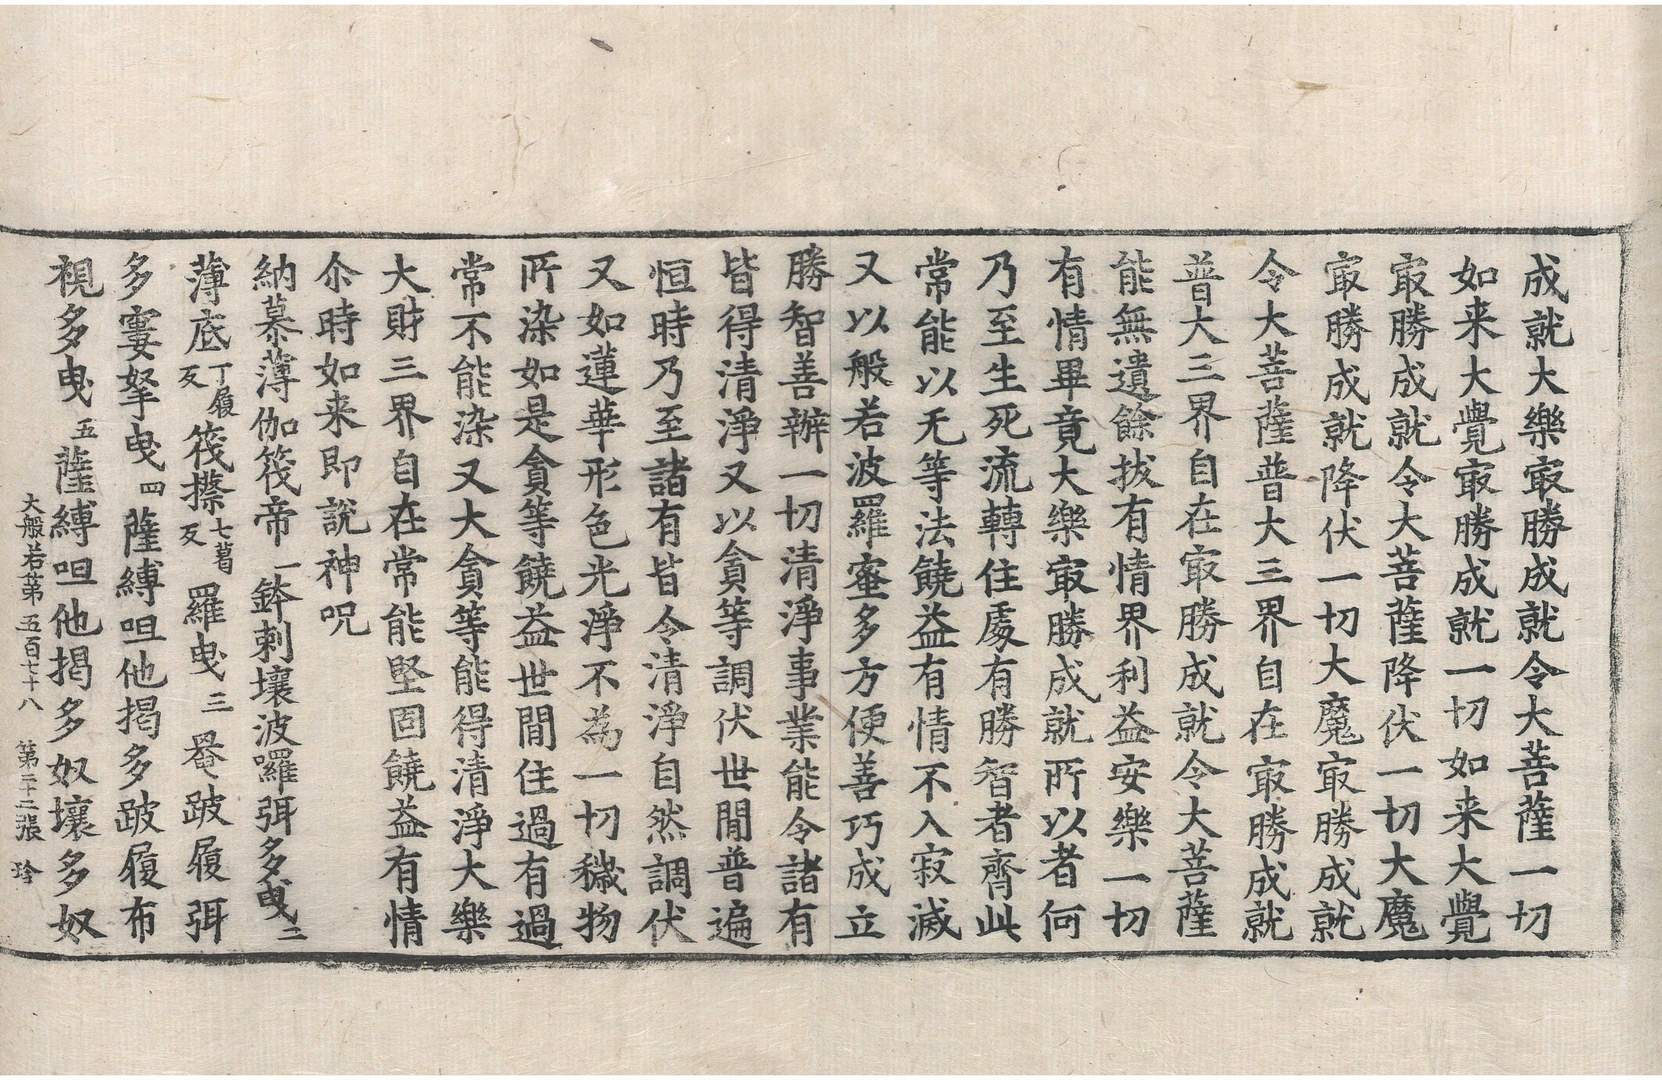 成就大樂㝡勝成就令大菩薩一切
如来大覺㝡勝成就一切如来大覺
㝡勝成就令大菩薩降伏一切大魔
㝡勝成就降伏一切大魔㝡勝成就
令大菩薩普大三界自在㝡勝成就
普大三界自在㝡勝成就令大菩薩
能無遺餘拔有情界利益安樂一切
有情畢竟大樂㝡勝成就所以者何
乃至生死流轉住處有勝智者齊此
常能以无等法饒益有情不入寂滅
又以般若波羅蜜多方便善巧成立
勝智善辦一切清淨事業能令諸有
皆得清淨又以貪等調伏世間普遍
恒時乃至諸有皆令清淨自然調伏
又如蓮華形色光淨不為一切穢物
所染如是貪等饒益世間住過有過
常不能染又大貪等能得清淨大樂
大財三界自在常能堅固饒益有情
尒時如来即說神呪
納慕薄伽筏帝一鉢剌壤波囉弭多曳二
薄底丁履反筏攃七葛反羅曳三罨跛履弭
多寠拏曳四薩縛呾他揭多跛履布
視多曳五薩縛呾他揭多奴壤多奴
大般若第五百七十八 第二十二張 珎